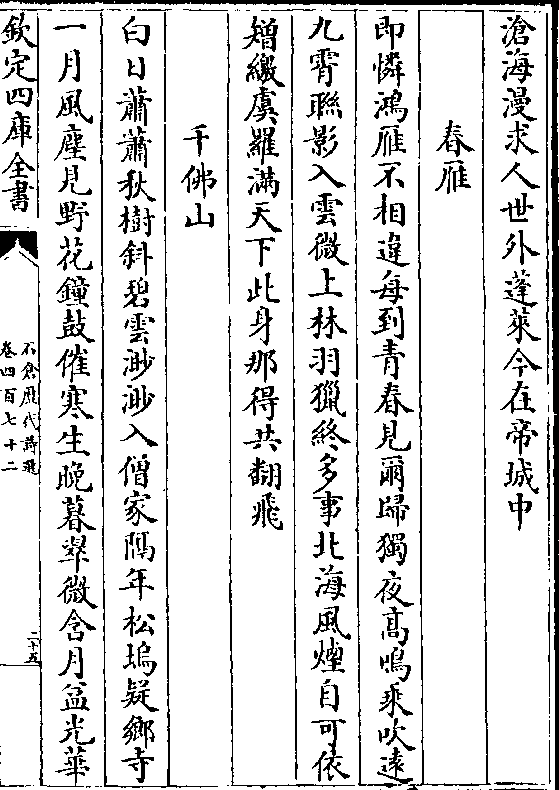 滄海漫求人世外蓬萊今在帝城中
春雁
即憐鴻雁不相違每到青春見爾歸獨夜高鳴乘吹遠
九霄聯影入雲微上林羽獵終多事北海風煙自可依
矰繳虞羅滿天下此身那得共翻飛
千佛山
白日蕭蕭秋樹斜碧雲渺渺入僧家隔年松塢疑鄉寺
一月風塵見野花鐘鼓催寒生晚暮翠微含月益光華
欽定四庫全書
石倉歷代詩選
卷四百七十二
二十五